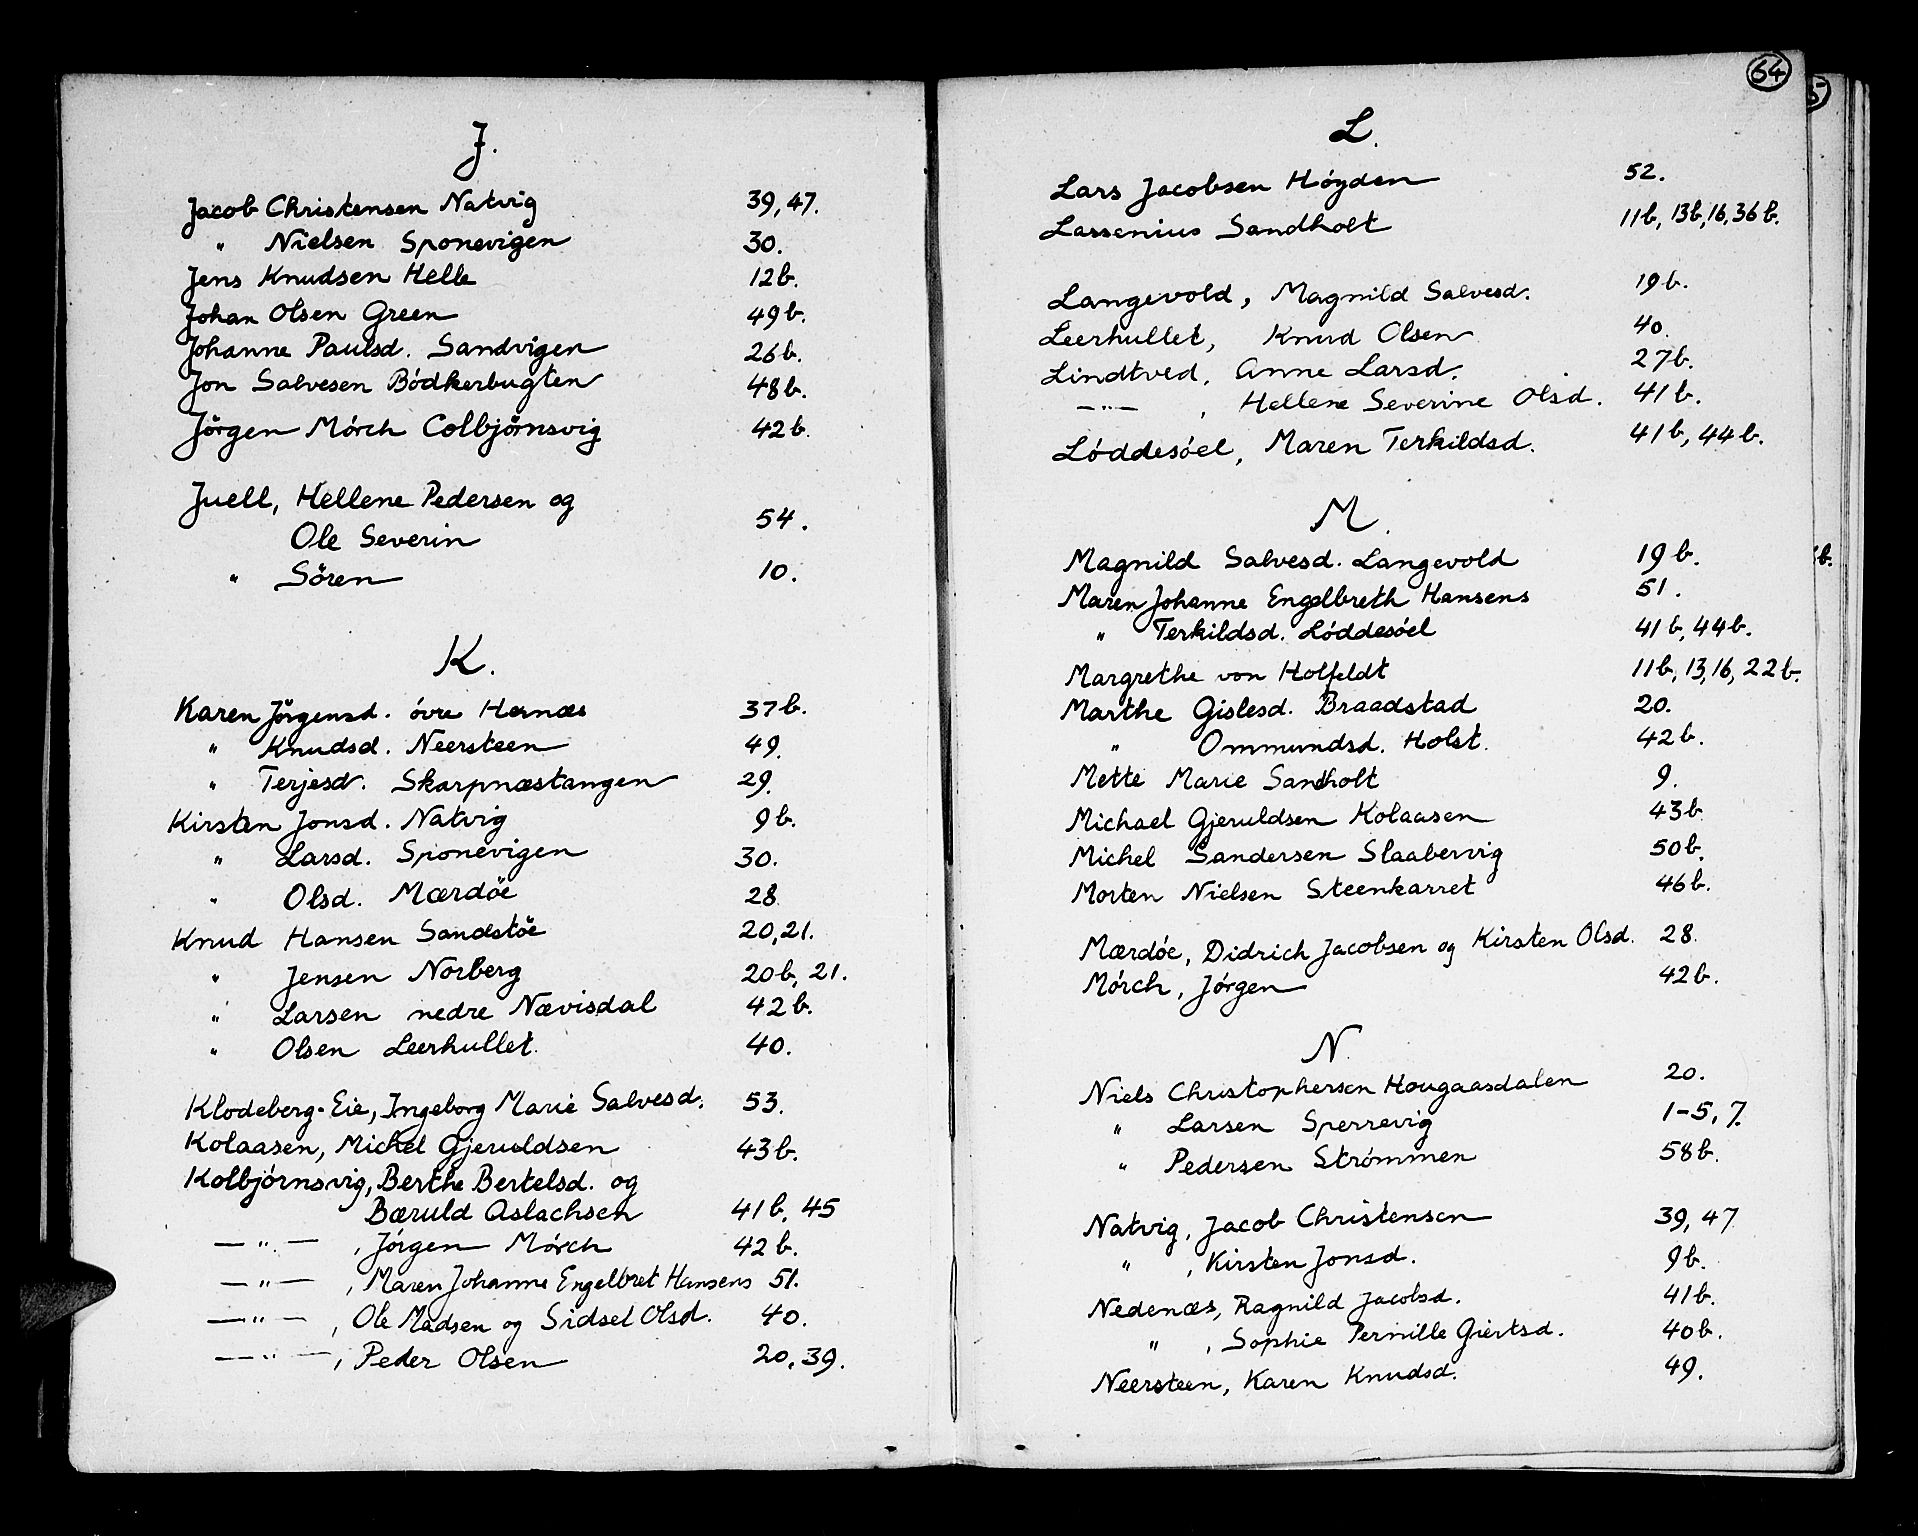 J.
Jacob Christensen Natvig 39, 47.
" Nielsen Sponevigen 30.
Jens Knudsen Helle 12b.
Johan Olsen Green 49b.
Johanne Paulsd. Sandvigen 26b.
Jon Salvesen Bódkerbugten 48b.
Jörgen Mórch Colbjörnsvig 42b.
Juell, Hellene Pedersen og
Ole Severin 54.
" Sören 10.
K.
Karen Jörgensd. óvre Hernæs 37b.
" Knudsd. Neersteen 49.
" Terjesd. Skarpnæstangen 29.
Kirsten Jonsd. Natvig 9b.
" Larsd. Sponevigen 30.
" Olsd. Mærdöe 28
Knud Hansen Sandstöe 20, 21.
" Jensen Norberg 20b, 21.
" Larsen nedre Nævisdal 42b.
" Olsen Leerhullet. 40.
Klodeberg-Eie, Ingeborg Marie Salvesd. 53.
Kolaasen, Michel Gjeruldsen 43b.
Kolbjórnsvig, Berthe Bertelsd. og
Bæruld Aslachsen 41b, 45
—"—, Jórgen Mórch 42b.
—"—, Maren Johanne Engelbret Hansens 51.
—"—, Ole Madsen og Sidsel Olsd. 40.
—"—, Peder Olsen 20, 39.
64
L.
Lars Jacobsen Höyden 52.
Lassenius Sandholt 11b, 13b, 16, 36b.
Langevold, Magnild Salvesd. 19b.
Leerhullet, Knud Olsen 40.
Lindtved, Anne Larsd. 27b.
—"—, Hellene Severine Olsd. 41b.
Lóddesóel, Maren Terkildsd. 41b, 44b.
M.
Magnild Salvesd. Langevold 19b.
Maren Johanne Engelbreth Hansens 51.
" Terkildsd. Lóddesóel 41b, 44b.
Margrethe von Holfeldt 11b, 13, 16, 22b.
Marthe Gislesd. Braadstad 20.
" Ommundsd. Holst. 42b.
Mette Marie Sandholt 9.
Michael Gjeruldsen Kolaasen 43b
Michel Sandersen Slaabervig 50b.
Morten Nielsen Steenkarret 46b.
Mærdóe, Didrich Jacobsen og Kirsten Olsd. 28.
Mórch, Jórgen 42b.
N.
Niels Christophersen Hougaasdalen 20.
" Larsen Sperrevig 1-5, 7.
" Pedersen Strómmen 58b.
Natvig, Jacob Christensen 39, 47
", Kirsten Jonsd. 9b.
Nedenæs, Ragnild Jacobsd. 41b.
", Sophie Pernille Giertsd. 40b.
Neersteen, Karen Knudsd. 49.